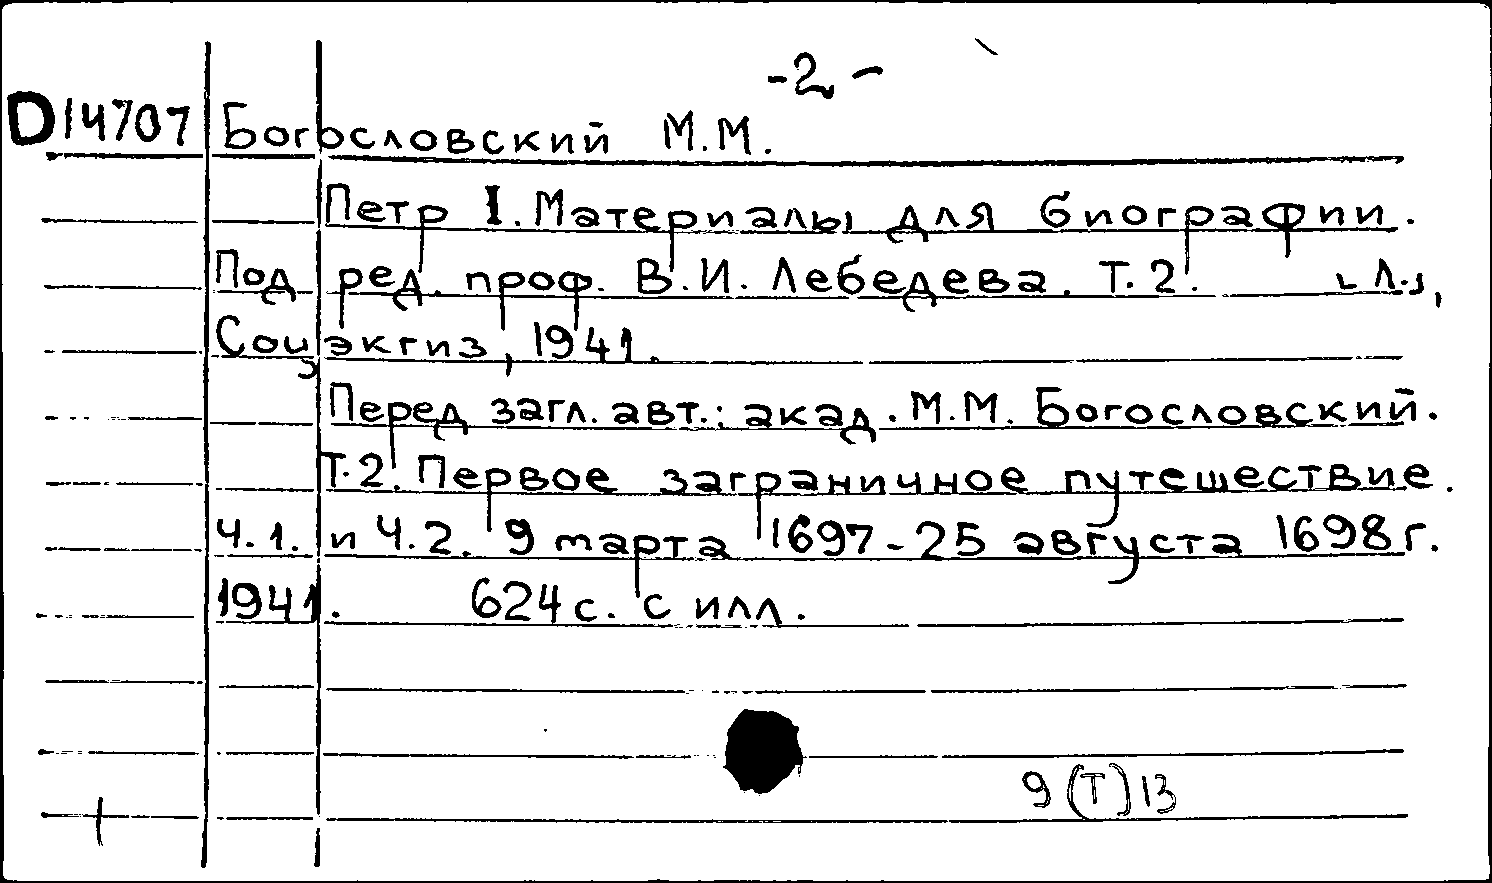 -2-
D14707 Богословский М.М.
Петр I. Материалы для биографии.
Под ред. проф. В.И. Лебедева. Т.2. [Л.],
Соцэкгиз, 1941.
Перед загл. авт.: акад. М.М. Богословский.
Т.2. Первое заграничное путешествие.
Ч.1. и Ч.2. 9 марта 1697-25 августа 1698г.
1941. 624с. с илл.
9(Т)13